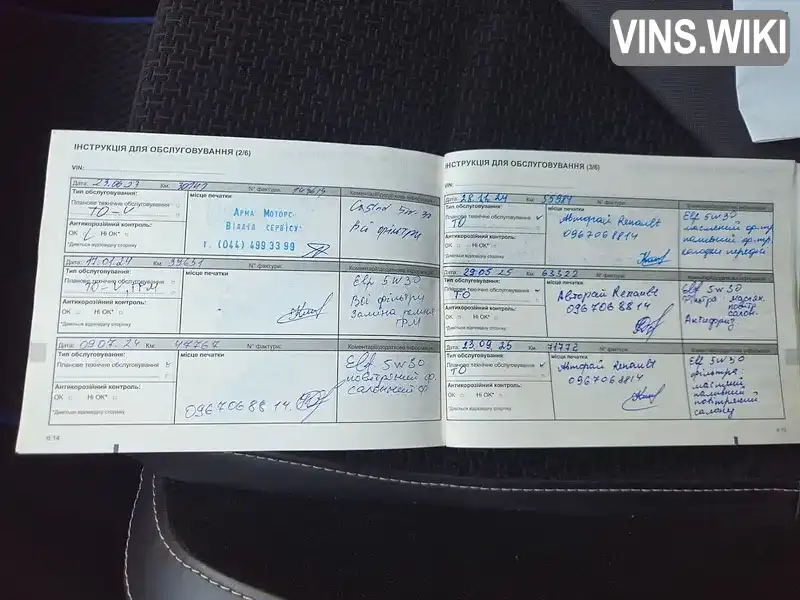 VINS.WIKI
ІНСТРУКЦІЯ ДЛЯ ОБСЛУГОВУВАННЯ (2/6)
VIN:
Дата: 23.06.23 Км: 30141 N° фактури:
Тип обслуговування:
Планове технічне обслуговування
ТО-
Антикорозійний контроль:
OK Ні OK*
*Дивіться відповідну сторінку
місце печатки
Арма Моторс
Відділ сервісу
т. (044) 499 33 99
Коментарі/додаткова інформація
Castrol 5w-30
Всі фільтри
Дата: 17.01.24 Км: 39651 N° фактури:
Тип обслуговування:
Планове технічне обслуговування
ТО-V, ГРМ
Антикорозійний контроль:
OK Ні OK*
*Дивіться відповідну сторінку
місце печатки
Коментарі/додаткова інформація
Elf 5W30
Всі фільтри
Заміна ремня
ГРМ
Дата: 09.07.24 Км: 47767 N° фактури:
Тип обслуговування:
Планове технічне обслуговування
Антикорозійний контроль:
OK Ні OK*
*Дивіться відповідну сторінку
місце печатки
0967068814.
Коментарі/додаткова інформація
Elf 5w30
повітряний ф.
салонний ф
6.14
ІНСТРУКЦІЯ ДЛЯ ОБСЛУГОВУВАННЯ (3/6)
VIN:
Дата: 28.11.24 Км: 55981 N° фактури:
Тип обслуговування:
Планове технічне обслуговування
ТО
Антикорозійний контроль:
OK Ні OK*
*Дивіться відповідну сторінку
місце печатки
Авторай Renault
0967068814
Коментарі/додаткова інформація
Elf 5W30
масляний ф-тр
паливний ф-тр.
колодки передні
Дата: 29.05.25 Км: 63522 N° фактури:
Тип обслуговування:
Планове технічне обслуговування
ТО
Антикорозійний контроль:
OK Ні OK*
*Дивіться відповідну сторінку
місце печатки
Авторай Renault
0967068814
Коментарі/додаткова інформація
Elf 5w30
Фільтра маслян.
повітр.
салон.
Антифриз
Дата: 23.09.25 Км: 71772 N° фактури:
Тип обслуговування:
Планове технічне обслуговування
ТО
Антикорозійний контроль:
OK Ні OK*
*Дивіться відповідну сторінку
місце печатки
Авторай Renault
0967068814
Коментарі/додаткова інформація
Elf 5W30
фільтра:
паливний
повітряний
салону
6.15